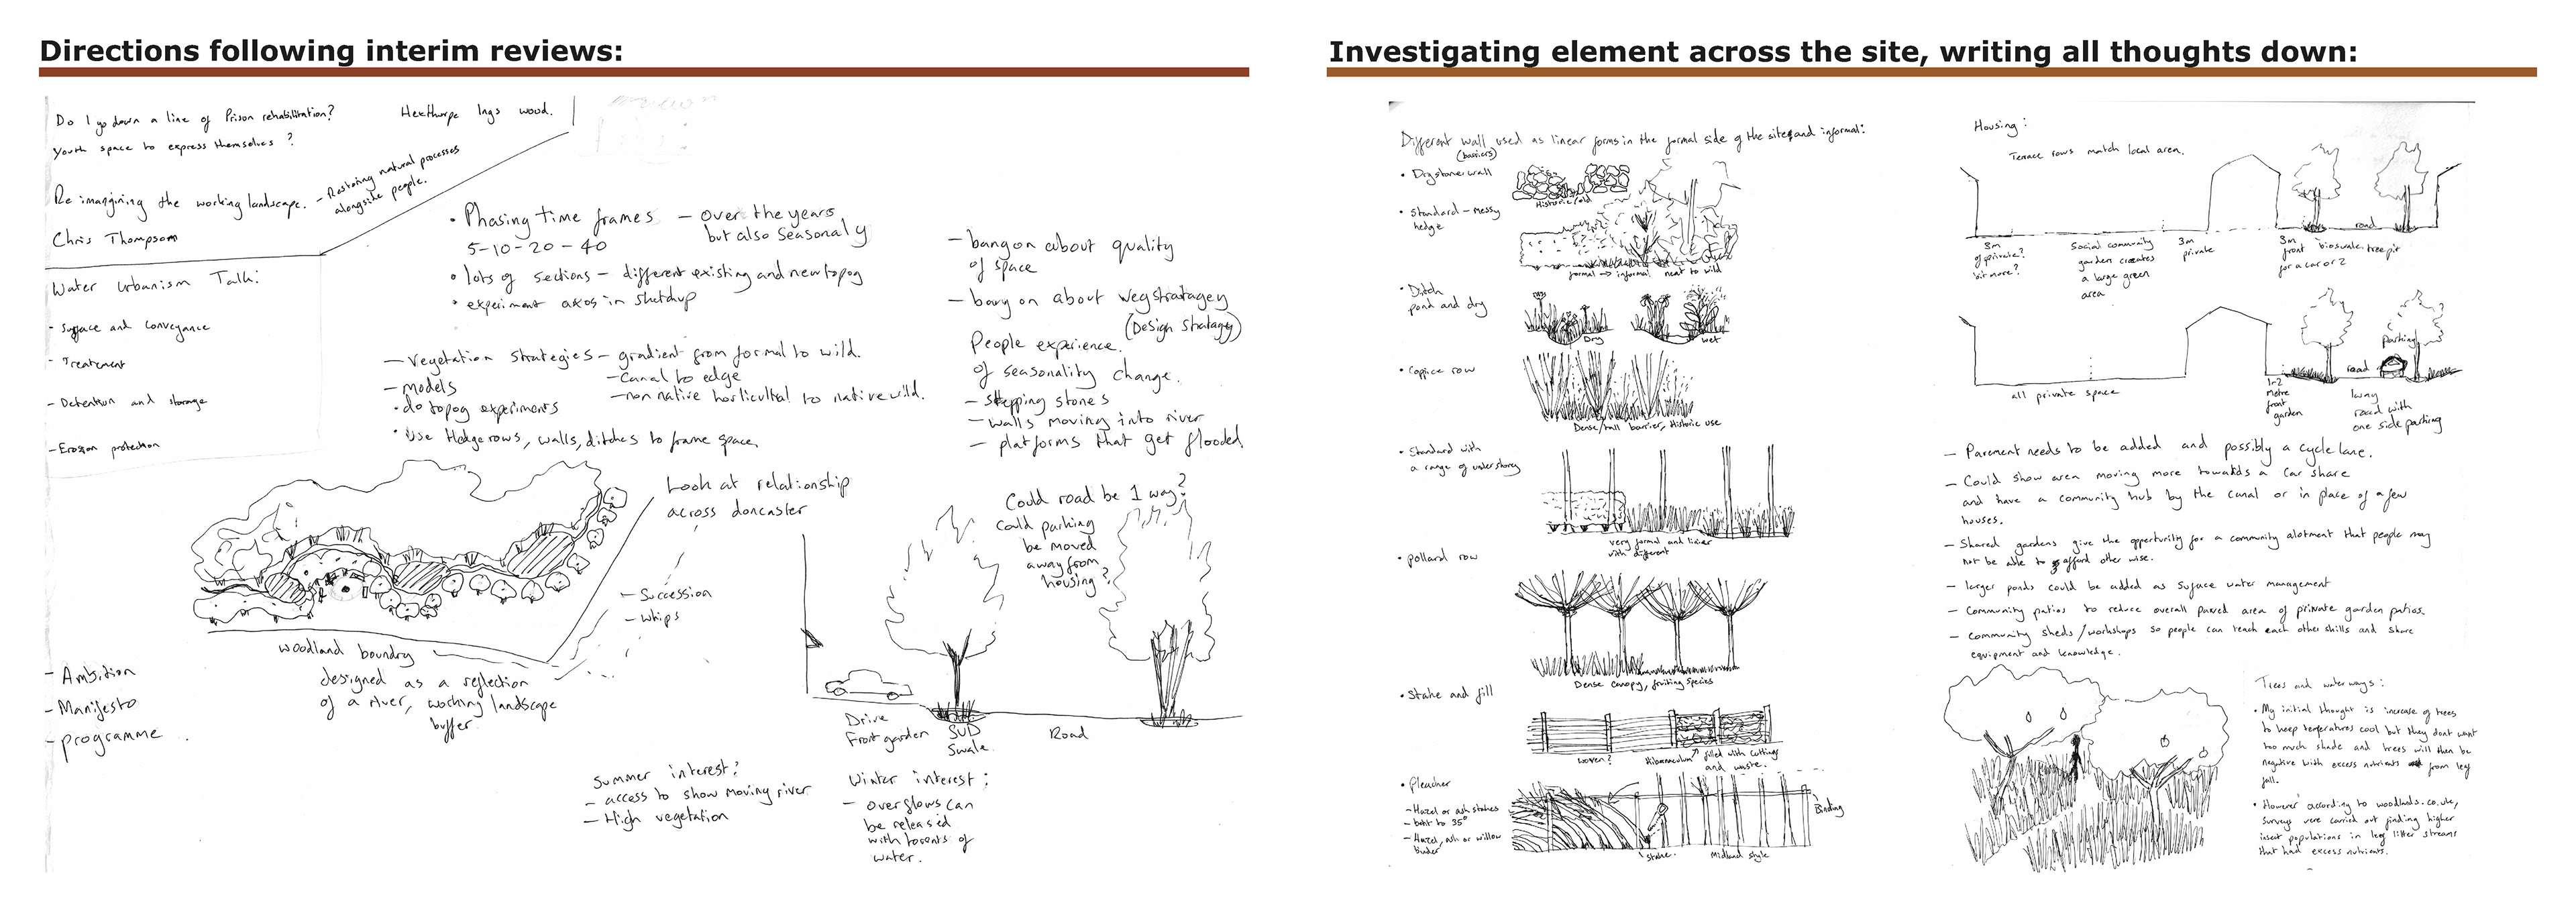 Directions following interim reviews:
Do I go down a line of Prison rehabilitation?
Youth space to express themselves?
Hexthorpe Ings wood.
Re imagining the working landscape. - Restoring natural processes
alongside people.
Chris Thompson
Water Urbanism Talk:
- Surface and Conveyance
- Treatment
- Detention and storage
- Erosion protection
• Phasing time frames - over the years
5-10-20-40 but also Seasonaly
• lots of sections - different existing and new topog
• experiment axos in sketchup
- Vegetation strategies - gradient from formal to wild.
- Canal to edge
- non native horticultral to native wild.
- models
• do topog experiments
• Use Hedgerows, walls, ditches to frame space.
- bang on about quality
of space
- bang on about veg stratagey
(Design stratagy)
People experience.
of seasonality change.
- Stepping stones
- walls moving into river
- platforms that get flooded.
Look at relationship
across doncaster
- Succession
- Whips
woodland boundry
designed as a reflection
of a river, working landscape
buffer.
- Ambition
- Manifesto
- programme.
Could road be 1 way?
Could parking
be moved
away from
housing?
Drive
Front garden
SUD
Swale.
Road
Summer interest:
- access to show moving river
- High vegetation
Winter interest:
- overflows can
be released
with torents of
water.
Investigating element across the site, writing all thoughts down:
Different wall used as linear forms in the formal side of the site and informal:
(barriers)
• Dry stone wall
Historic/old
• Standard - messy
hedge
formal → informal neat to wild
• Ditch
pond and dry
Dry
wet
• Coppice row
Dense/tall barrier, Historic use
• Standard with
a range of understorey
very formal and linier
with different
• pollard row
Dense canopy, fruiting species
• Stake and fill
woven?
Hibernaculum filled with cuttings
and waste.
• Pleacher
- Hazel or ash stakes
- bent to 35°
- Hazel, ash or willow
binder
Binding
Stake.
Midland style
Housing:
Terrace rows match local area.
3m
of private?
bit more?
Social community
garden creates
a large green
area
3m
private
3m
front
for a car or 2
bioswale.treepit
road
all private space
1-2
metre
front
garden
road
parking
road with
one side parking
- Pavement needs to be added and possibly a cycle lane.
- Could show area moving more towards a car share
and have a community hub by the canal or in place of a few
houses.
- Shared gardens give the opportunity for a community alotment that people may
not be able to afford other wise.
- larger ponds could be added as surface water management
- Community patios to reduce overall paved area of private garden patios.
- Community sheds/workshops so people can teach each other skills and share
equipment and knowledge.
Trees and waterways:
• My initial thought is increase of trees
to keep temperatures cool but they dont want
too much shade and trees will then be
negative with excess nutrients from leaf
fall.
• However according to woodlands.co.uk,
surveys were carried out finding higher
insect populations in leaf litter streams
that had excess nutrients.